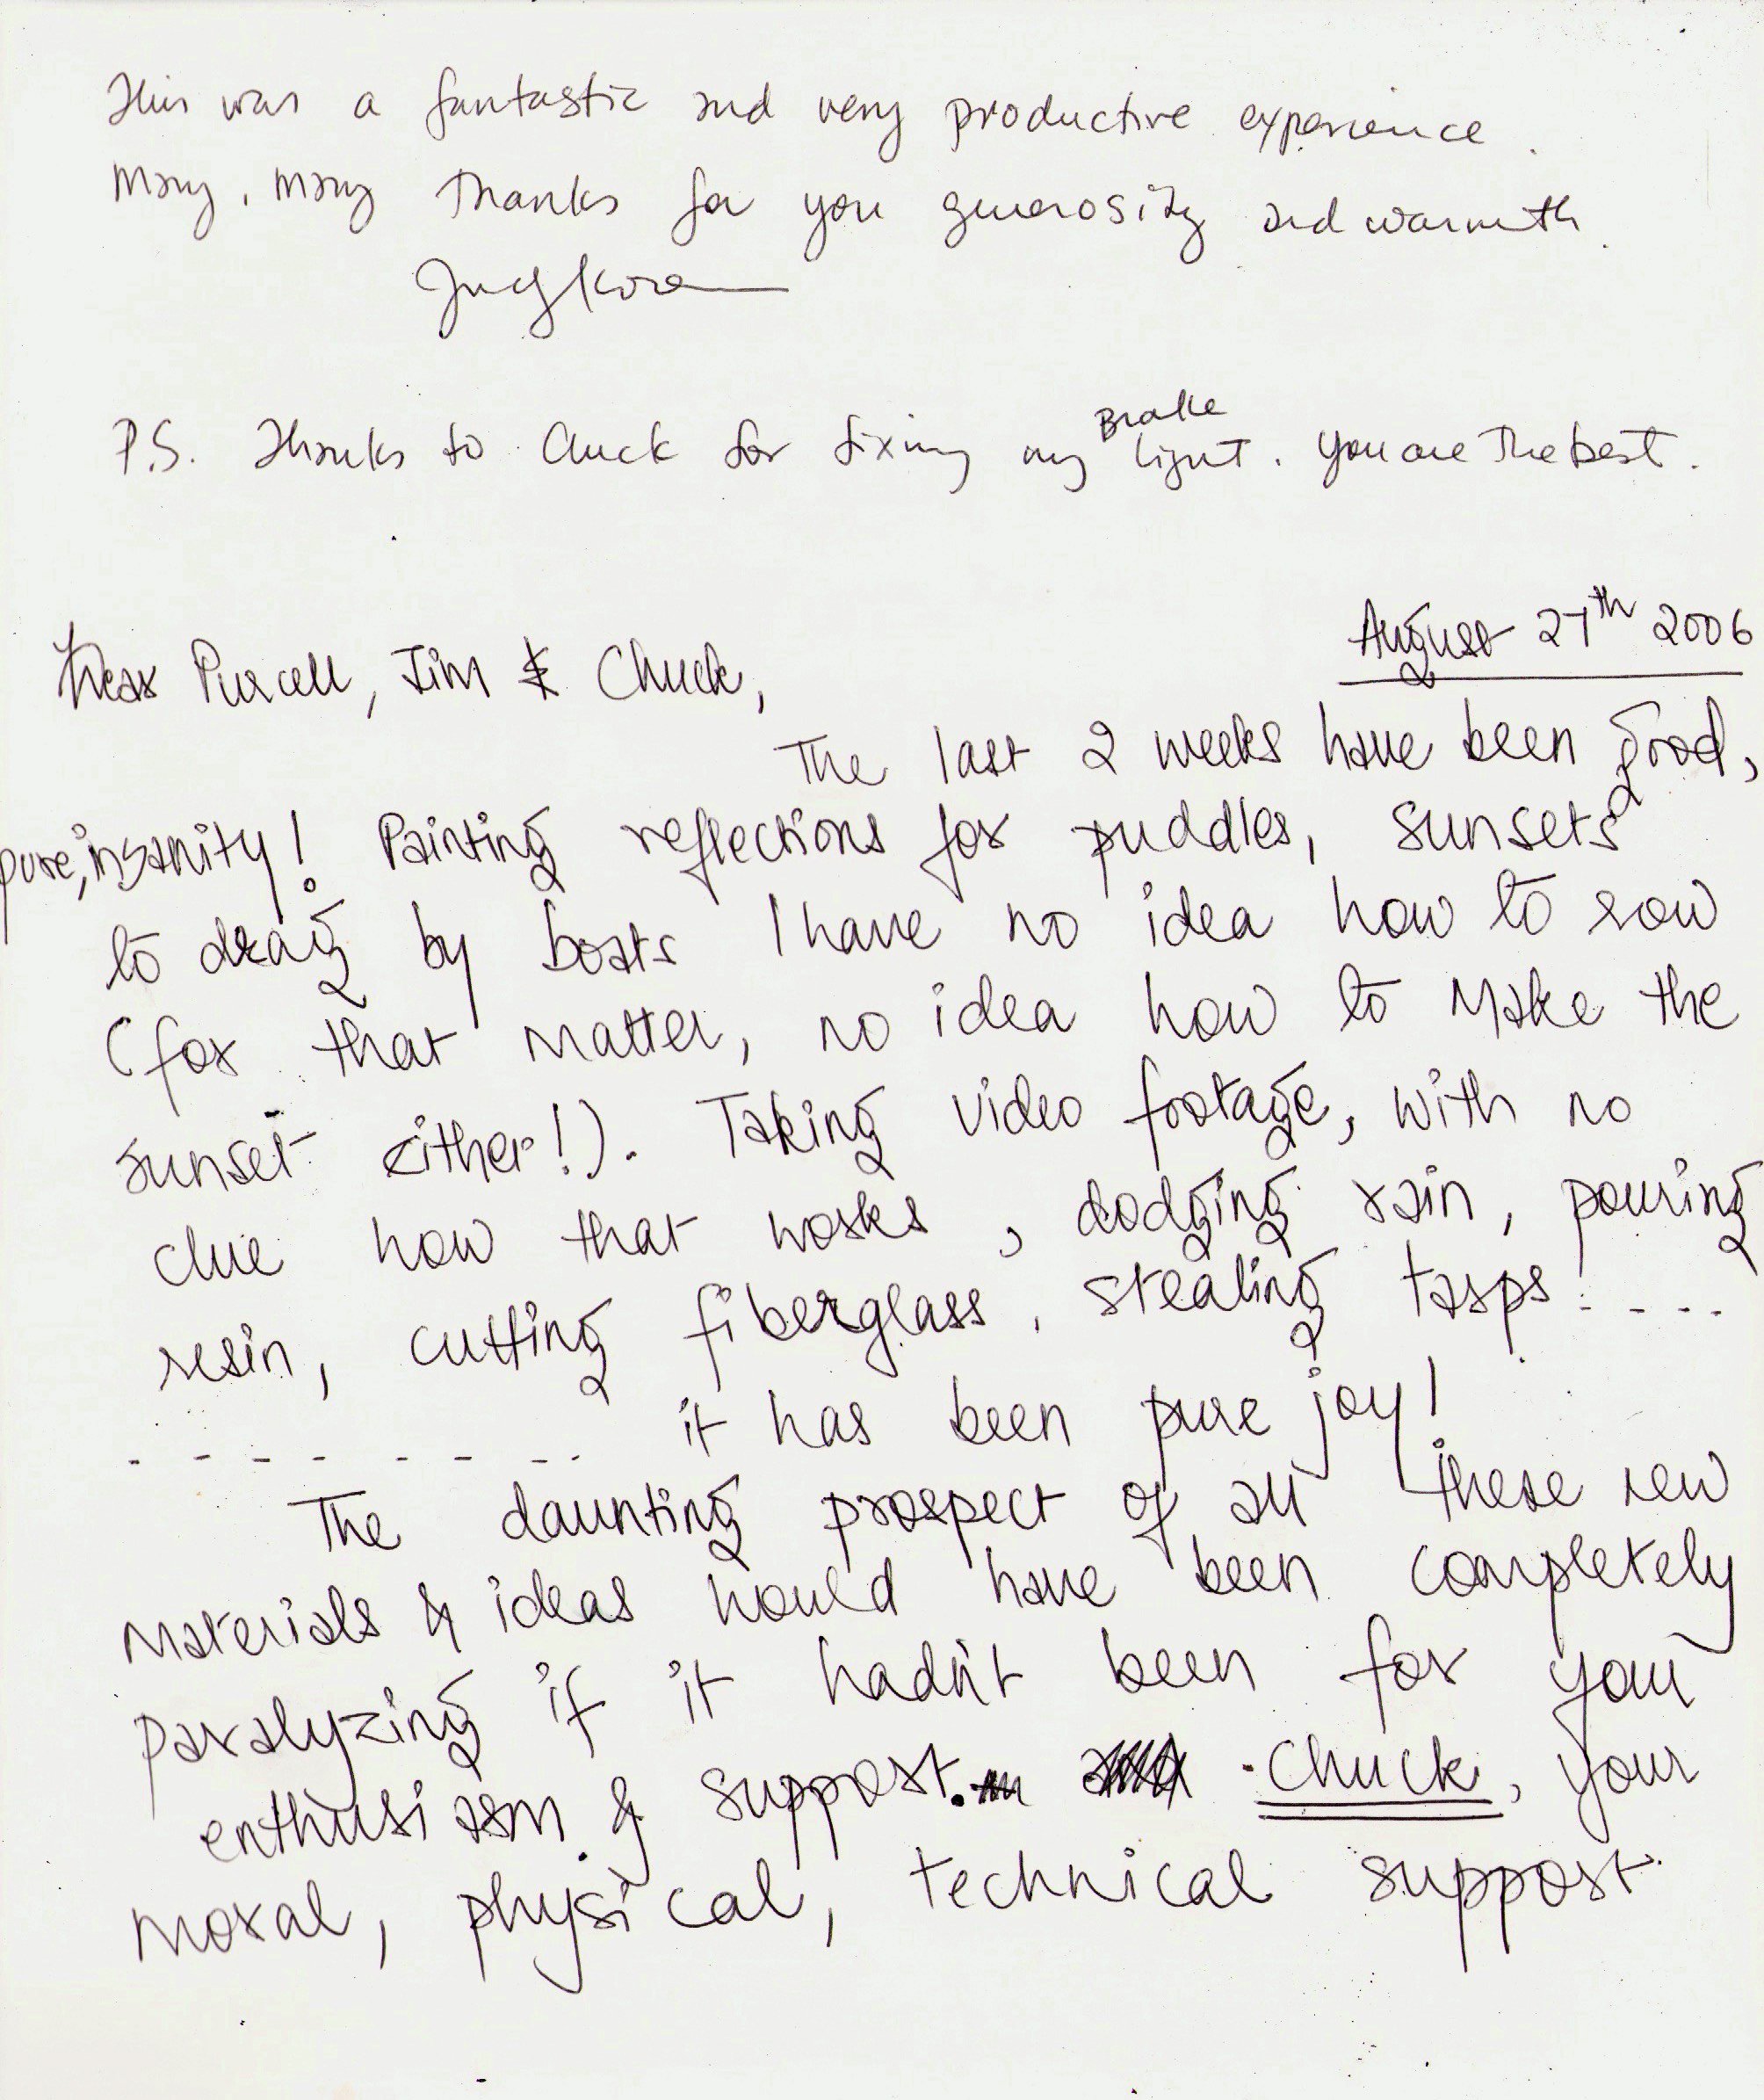 This was a fantastic and very productive experience.
Many, many Thanks for you generosity and warmth.
P.S. Thanks to Chuck for fixing my Brake light. You are The best.
August 27th 2006
Dear Purcell, Jim & Chuck,
The last 2 weeks have been good,
pure, insanity! Painting reflections for puddles, sunsets
to drag by boats I have no idea how to row
(for that matter, no idea how to make the
sunset either!). Taking video footage, with no
clue how that works, dodging rain, pouring
resin, cutting fiberglass, stealing tarps! ....
........ it has been pure joy!
The daunting prospect of all these new
materials & ideas would have been completely
paralyzing if it hadn't been for your
enthusiasm & support. Chuck, your
moral, physical, technical support